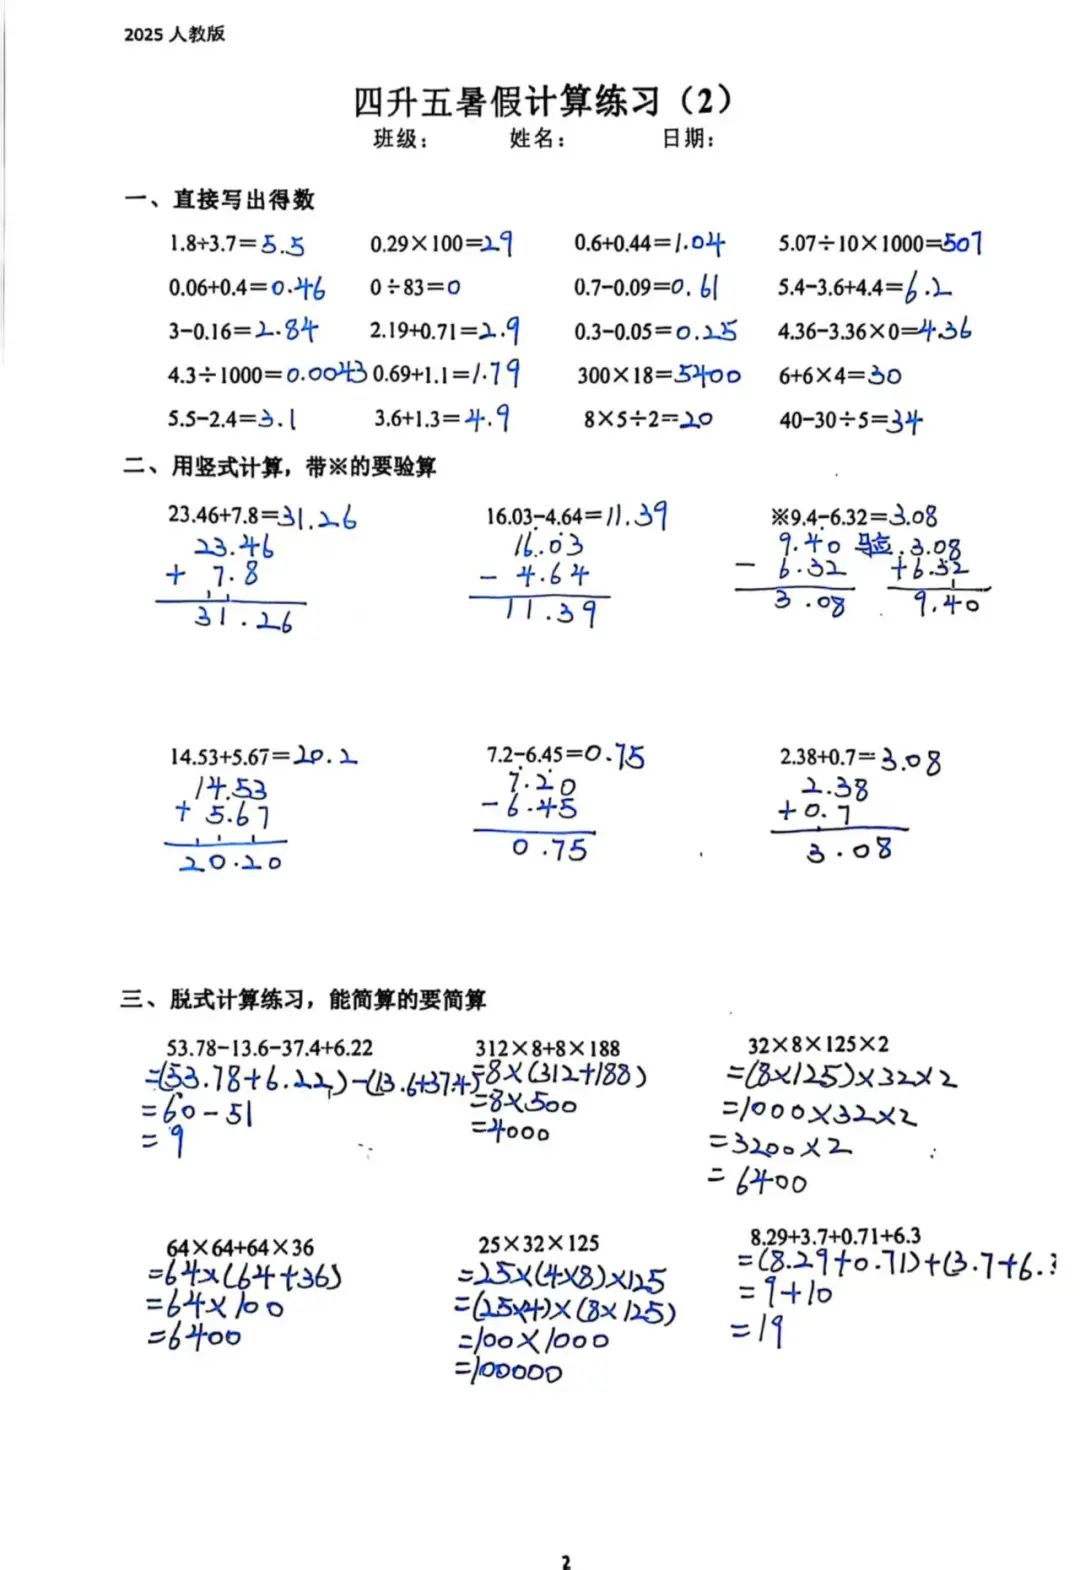 2025 人教版
四升五暑假计算练习（2）
班级： 姓名： 日期：
一、直接写出得数
1.8+3.7=5.5 0.29×100=29 0.6+0.44=1.04 5.07÷10×1000=507
0.06+0.4=0.46 0÷83=0 0.7-0.09=0.61 5.4-3.6+4.4=6.2
3-0.16=2.84 2.19+0.71=2.9 0.3-0.05=0.25 4.36-3.36×0=4.36
4.3÷1000=0.0043 0.69+1.1=1.79 300×18=5400 6+6×4=30
5.5-2.4=3.1 3.6+1.3=4.9 8×5÷2=20 40-30÷5=34
二、用竖式计算，带※的要验算
23.46+7.8=31.26 16.03-4.64=11.39 ※9.4-6.32=3.08
23.46 16.03 9.40 验.3.08
+ 7.8 - 4.64 - 6.32 +6.32
31.26 11.39 3.08 9.40
14.53+5.67=20.2 7.2-6.45=0.75 2.38+0.7=3.08
14.53 7.20 2.38
+ 5.67 -6.45 +0.7
20.20 0.75 3.08
三、脱式计算练习，能简算的要简算
53.78-13.6-37.4+6.22 312×8+8×188 32×8×125×2
=(53.78+6.22)-(13.6+37.4) =8×(312+188) =(8×125)×32×2
=60-51 =8×500 =1000×32×2
=9 =4000 =3200×2
=6400
64×64+64×36 25×32×125 8.29+3.7+0.71+6.3
=64×(64+36) =25×(4×8)×125 =(8.29+0.71)+(3.7+6.3
=64×100 =(25×4)×(8×125) =9+10
=6400 =100×1000 =19
=100000
2